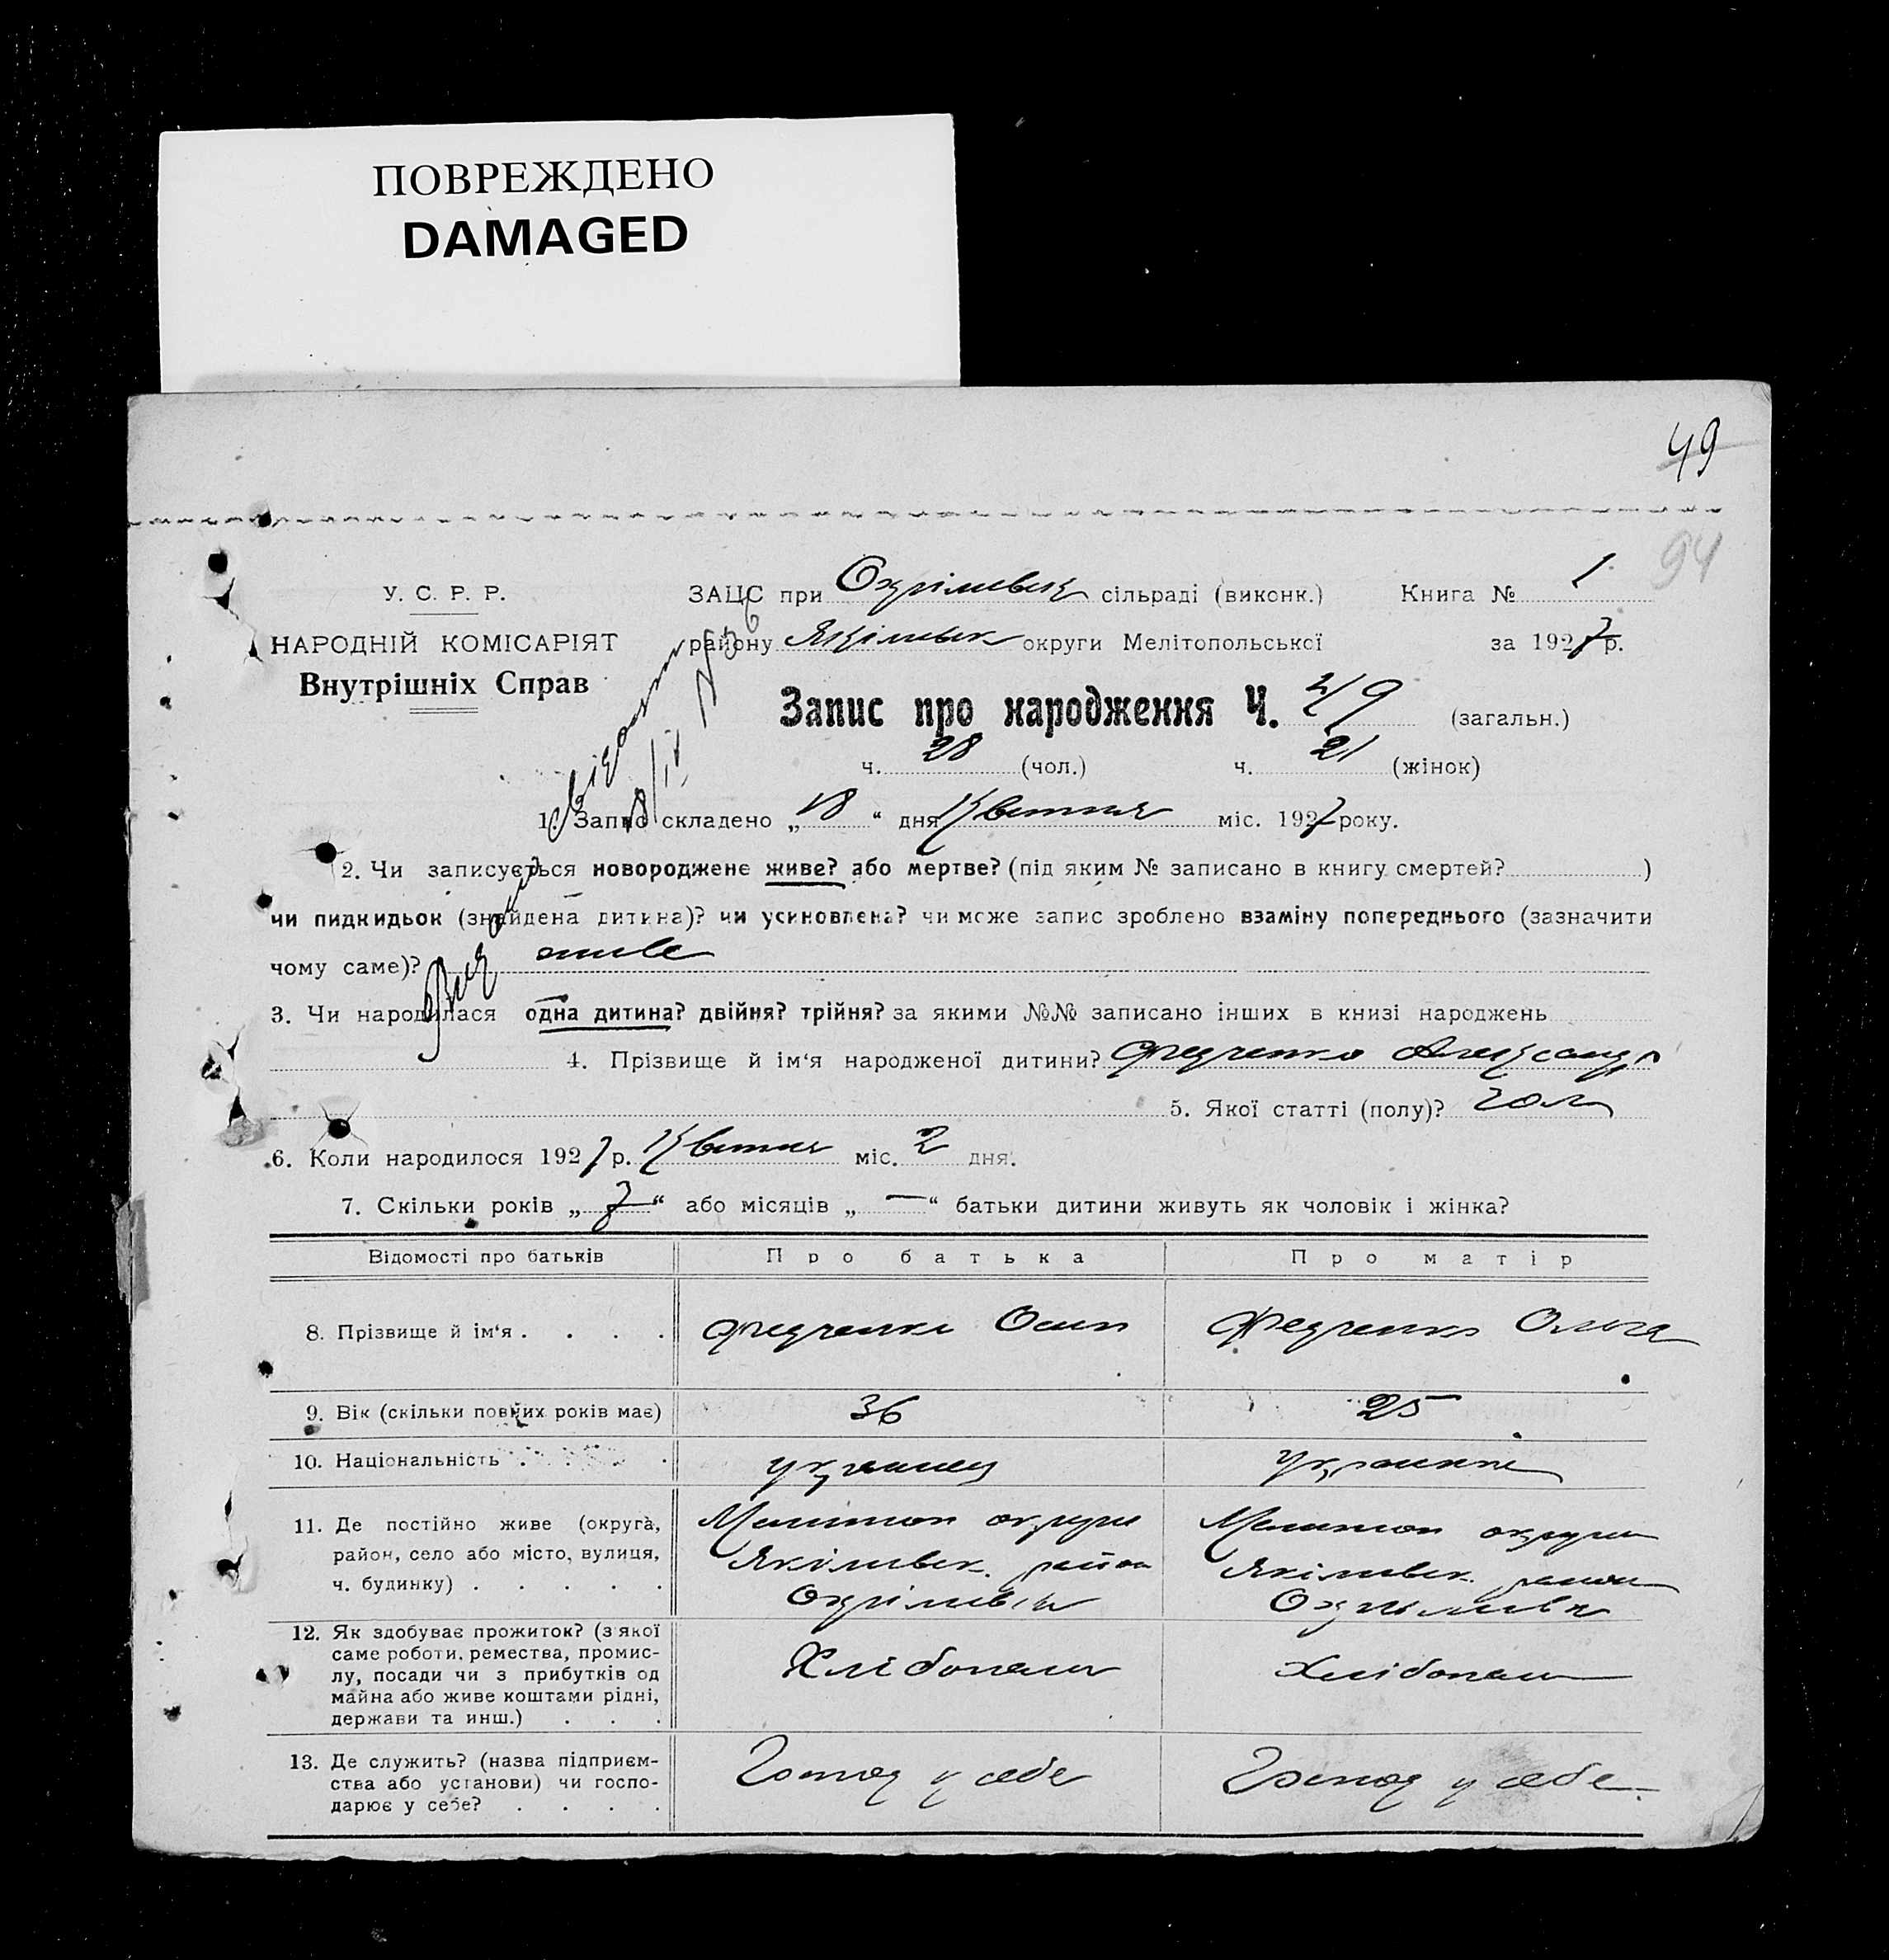 ПОВРЕЖДЕНО
DAMAGED
49
94
У. С. Р. Р.
НАРОДНІЙ КОМІСАРІЯТ
Внутрішніх Справ
ЗАЦС при Охрімівськ сільраді (виконк.) Книга № 1
району Якімівськ округи Мелітопольської за 1927 р.
Запис про народження Ч. 49 (загальн.)
ч. 28 (чол.) ч. 21 (жінок)
1. Запис складено „18“ дня Квітня міс. 1927 року.
2. Чи записується новороджене живе? або мертве? (під яким № записано в книгу смертей? )
чи пидкидьок (знайдена дитина)? чи усиновлена? чи може запис зроблено взаміну попереднього (зазначити
чому саме)? живе
3. Чи народилася одна дитина? двійня? трійня? за якими №№ записано інших в книзі народжень
4. Прізвище й ім‘я народженої дитини? Федченко Александр
5. Якої статті (полу)? чол
6. Коли народилося 1927 р. Квітня міс. 2 дня.
7. Скільки років „7“ або місяців „—“ батьки дитини живуть як чоловік і жінка?
Відомості про батьків Про батька Про матір
8. Прізвище й ім‘я . . . . Федченко Осип Федченко Ольга
9. Вік (скільки повних років має) 36 25
10. Національність . . . . украинец украинка
11. Де постійно живе (округа, Мелитоп округи Мелитоп округи
район, село або місто, вулиця, Якімівськ. район Якімівськ. район
ч. будинку) . . . . . Охрімівка Охрімівка
12. Як здобуває прожиток? (з якої
саме роботи, ремества, промис-
лу, посади чи з прибутків од Хлібопаш Хлібопаш
майна або живе коштами рідні,
держави та инш.) . . .
13. Де служить? (назва підприєм-
ства або установи) чи госпо- Господ у себе Господ у себе
дарює у себе? . . . .